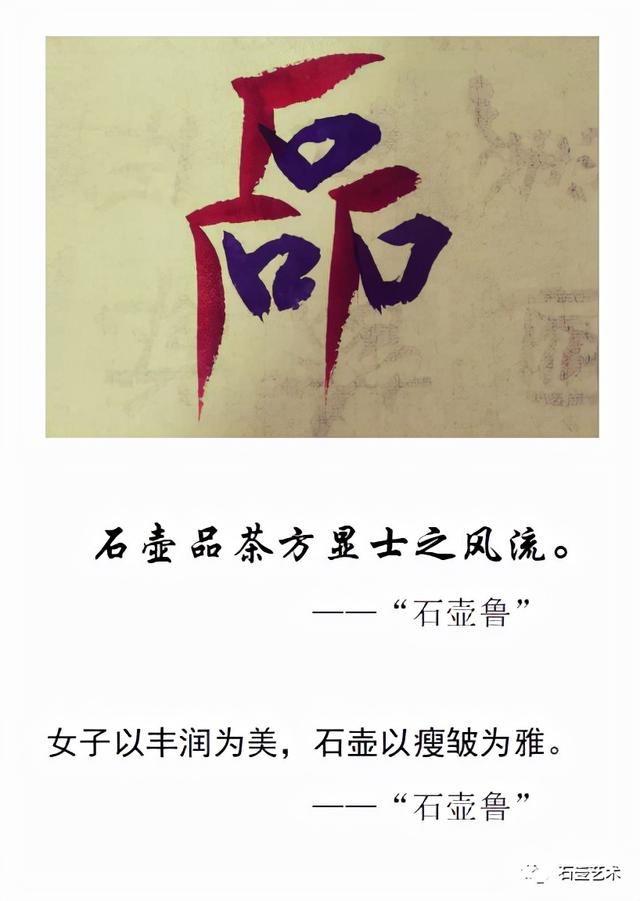 磊
石壶品茶方显士之风流。
——“石壶鲁”
女子以丰润为美，石壶以瘦皱为雅。
——“石壶鲁”
石壶艺术